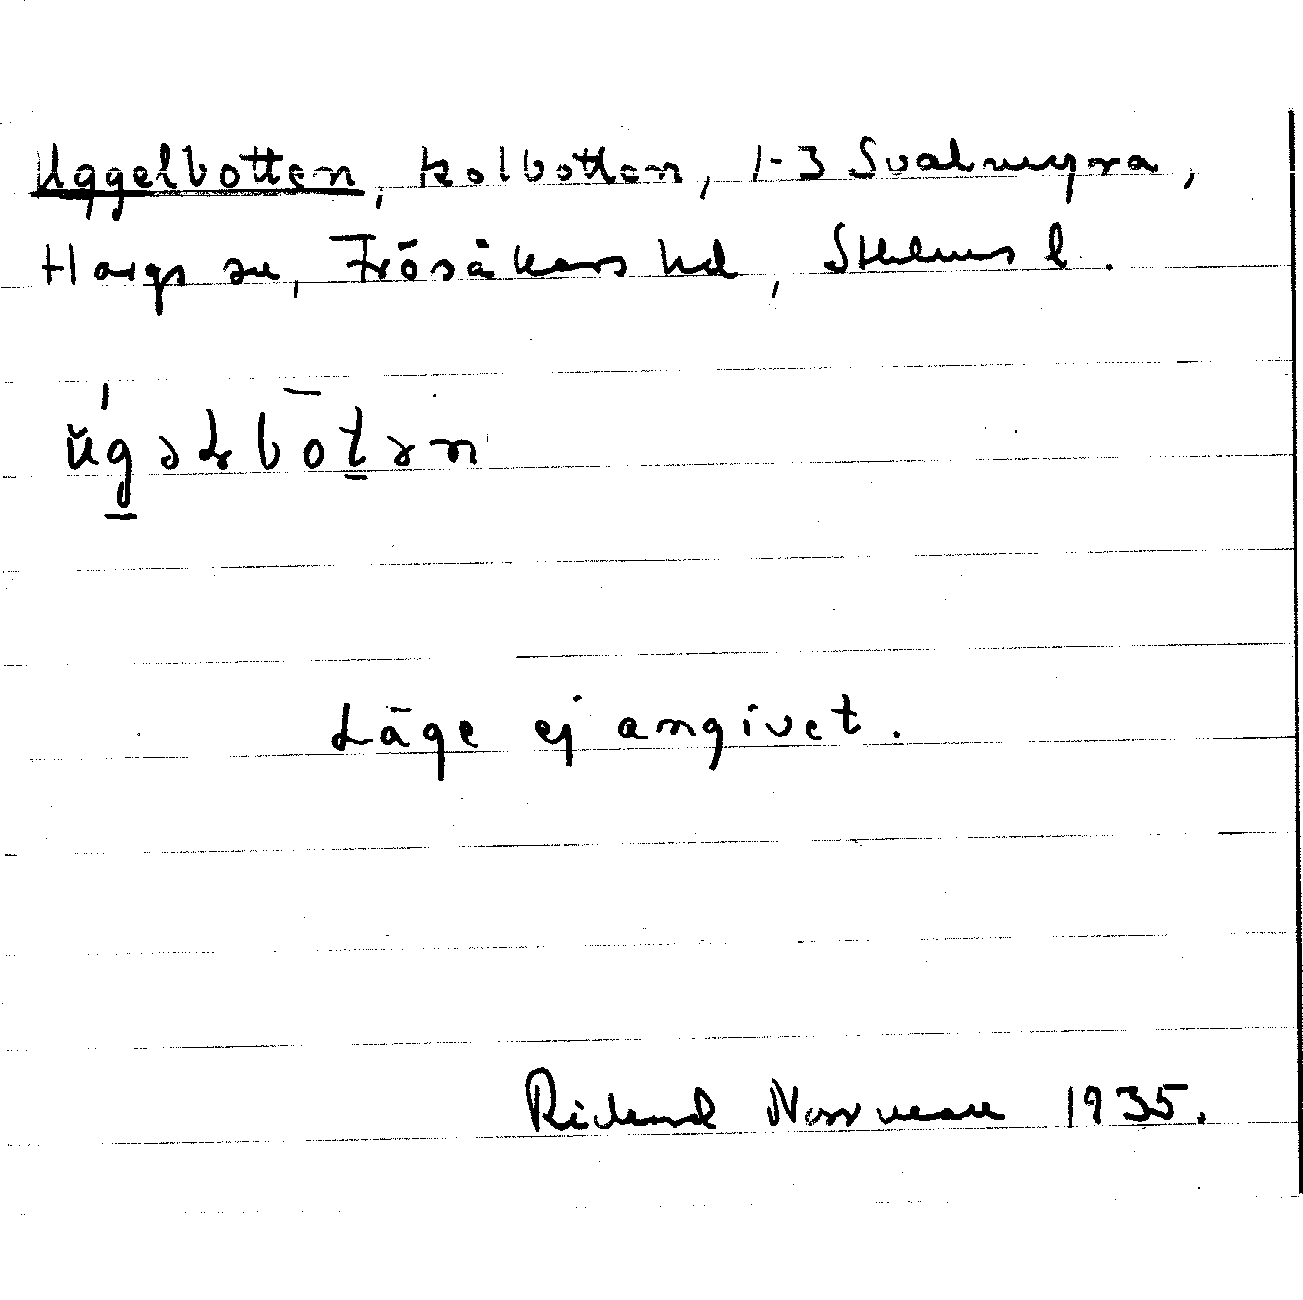 Uggelbotten, kolbotten, 1-3 Svalmyra,
Hargs sn, Frösåkers hd, Sthlms l.
ŭgəłbotən
Läge ej angivet.
Rickard Norrman 1935.